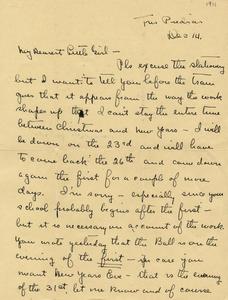 1911
Tres Piedras
Dec 14.
My Dearest Little Girl -
Pls excuse the stationery
but I want to tell you before the train
goes that it appears from the way the work
shapes up that I can't stay the entire time
between Christmas and New Years - I will
be down on the 23rd and will have
to come back the 26th and come down
again the first for a couple of more
days. I'm sorry - especially since your
school probably begins after the first -
but it is necessary on account of the work.
You wrote yesterday that the Ball is on the
evening of the first - in case you
meant New Years Eve - that is the evening
of the 31st, let me know and of course